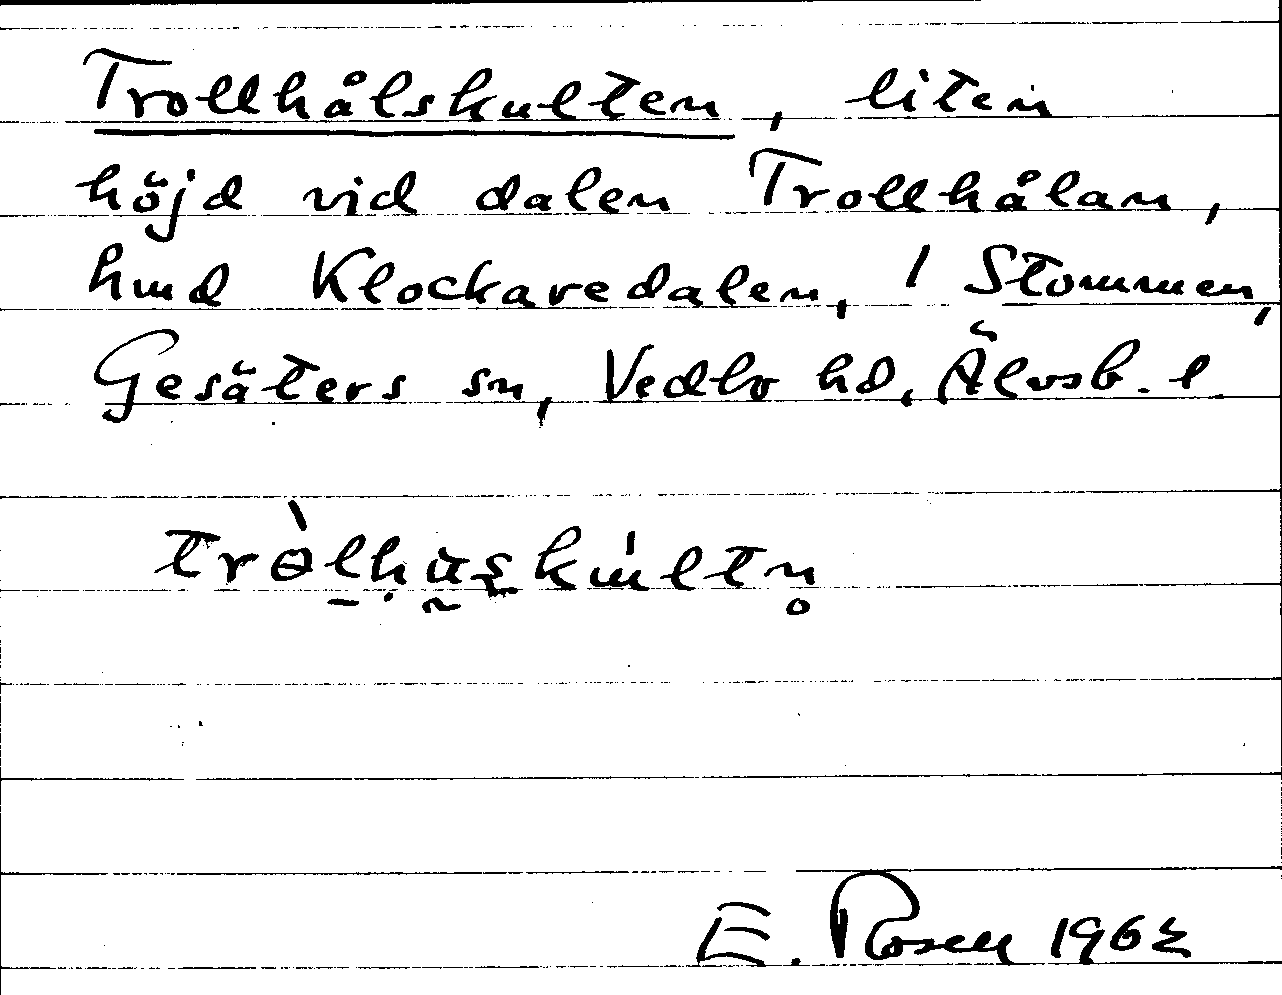 Trollhålskulten, liten
höjd vid dalen Trollhålan,
hmd Klockaredalen, 1 Stommen,
Gesäters sn, Vedbo hd, Älvsb. l.
E. Rosell 1962